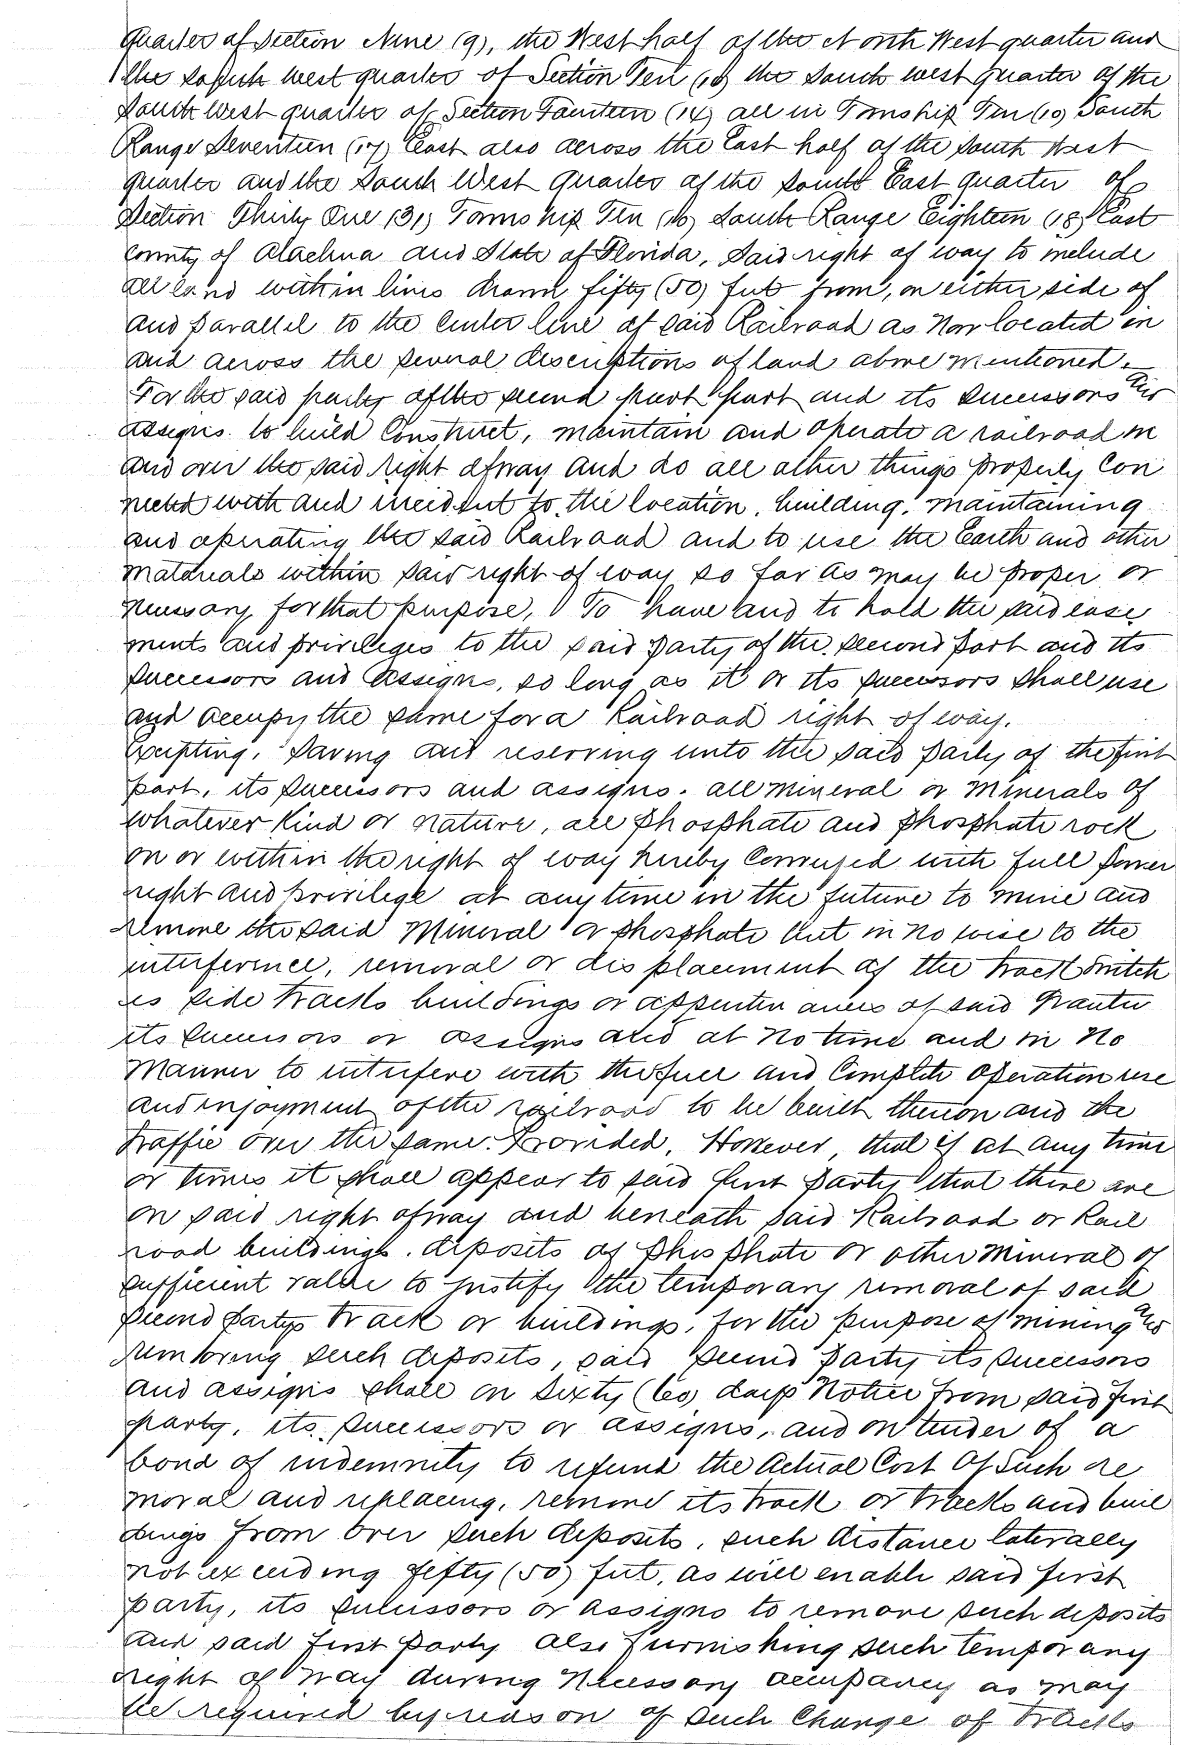 Quarter of Section Nine (9), the West half of the North West quarter and
the South west quarter of Section Ten (10) the South west quarter of the
South West quarter of Section Fourteen (14) all in Township Ten (10) South
Range Seventeen (17) East also across the East half of the South West
quarter and the South West Quarter of the South East quarter of
Section Thirty One (31) Township Ten (10) South Range Eighteen (18) East
County of Alachua and State of Florida, Said right of way to include
all land within lines drawn fifty (50) feet from, on either side of
and parallel to the Center line of said Railroad as now located in
and across the several descriptions of land above mentioned.
For the said party of the second part part and its successors and
assigns to build Construct, maintain and operate a railroad on
and over the said right of way and do all other things properly Con
nected with and incident to the location, building, maintaining
and operating the said Railroad and to use the Earth and other
materials within said right of way so far as may be proper or
necessary for that purpose, To have and to hold the said ease
ments and privileges to the said party of the second part and its
successors and assigns, so long as it or its successors shall use
and occupy the same for a Railroad right of way.
Excepting, Saving and reserving unto the said party of the first
part, its successors and assigns. all mineral or minerals of
whatever Kind or nature, all phosphate and phosphate rock
on or within the right of way hereby Conveyed with full power
right and privilege at any time in the future to mine and
remove the said Mineral or phosphate but in no wise to the
interference, removal or displacement of the track switch
es side tracks buildings or appurten ances of said Grantee
its successors or assigns and at no time and in no
manner to interfere with the free and Complete operation use
and enjoyment of the railroad to be built thereon and the
traffic over the same. Provided, However, that if at any time
or times it shall appear to said first party that there are
on said right of way and beneath said Railroad or Rail
road buildings. deposits of phosphate or other mineral of
sufficient value to justify the temporary removal of said
second partys track or buildings, for the purpose of mining and
removing such deposits, said second party its successors
and assigns shall on Sixty (60) days Notice from said first
party, its successors or assigns, and on tender of a
bond of indemnity to refund the Actual Cost Of Such re
moval and replacing, remove its track or tracks and buil
dings from over such deposits, such distance laterally
not exceeding fifty (50) feet, as will enable said first
party, its successors or assigns to remove such deposits
and said first party also furnishing such temporary
right of way during necessary occupancy as may
be required by reason of such Change of Tracks